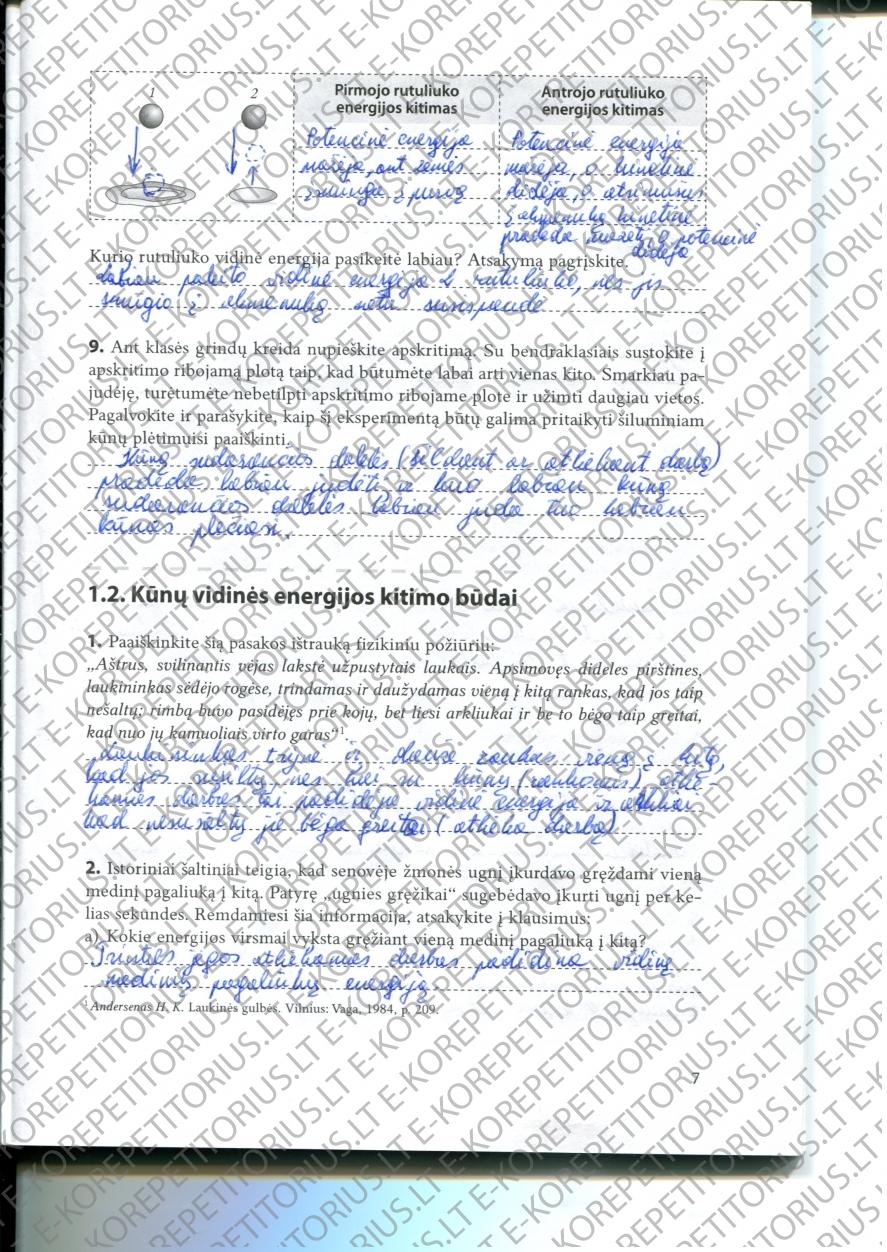 1
2
Pirmojo rutuliuko
energijos kitimas
Antrojo rutuliuko
energijos kitimas
Potencinė energija
mažėja, ant žemės
įsminga į purvą
Potencinė energija
mažėja, o kinetinė
didėja, o atsimušus
į akmenuką kinetinė
pradeda mažėti, o potencinė
didėja
Kurio rutuliuko vidinė energija pasikeitė labiau? Atsakymą pagrįskite.
labiau pakito vidinė energija 2 rutuliuko, nes jis
smūgio į akmenuką metu susispaudė
9. Ant klasės grindų kreida nupieškite apskritimą. Su bendraklasiais sustokite į
apskritimo ribojamą plotą taip, kad būtumėte labai arti vienas kito. Smarkiau pa-
judėję, turėtumėte nebetilpti apskritimo ribojame plote ir užimti daugiau vietos.
Pagalvokite ir parašykite, kaip šį eksperimentą būtų galima pritaikyti šiluminiam
kūnų plėtimuisi paaiškinti.
Kūną sudarančios dalelės (šildant ar atliekant darbą)
pradeda labiau judėti ir kuo labiau kūną
sudarančios dalelės labiau juda tuo labiau
kūnas plečiasi.
1.2. Kūnų vidinės energijos kitimo būdai
1. Paaiškinkite šią pasakos ištrauką fizikiniu požiūriu:
„Aštrus, svilinantis vėjas lakstė užpustytais laukais. Apsimovęs dideles pirštines,
laukininkas sėdėjo rogėse, trindamas ir daužydamas vieną į kitą rankas, kad jos taip
nešaltų; rimbą buvo pasidėjęs prie kojų, bet liesi arkliukai ir be to bėgo taip greitai,
kad nuo jų kamuoliais virto garas“1.
Laukininkas trynė ir daužė rankas vieną į kitą,
kad jos sušiltų, nes kai su kūnu (rankomis) atlie-
kamas darbas tai padidėja vidinė energija ir arkliai
kad nesušaltų jie bėga greitai (atlieka darbą)
2. Istoriniai šaltiniai teigia, kad senovėje žmonės ugnį įkurdavo gręždami vieną
medinį pagaliuką į kitą. Patyrę „ugnies gręžikai“ sugebėdavo įkurti ugnį per ke-
lias sekundes. Remdamiesi šia informacija, atsakykite į klausimus:
a) Kokie energijos virsmai vyksta gręžiant vieną medinį pagaliuką į kitą?
Trinties jėgos atliekamas darbas padidina vidinę
medinių pagaliukų energiją.
1 Andersenas H. K. Laukinės gulbės. Vilnius: Vaga, 1984, p. 209.
7
E-KOREPETITORIUS.LT